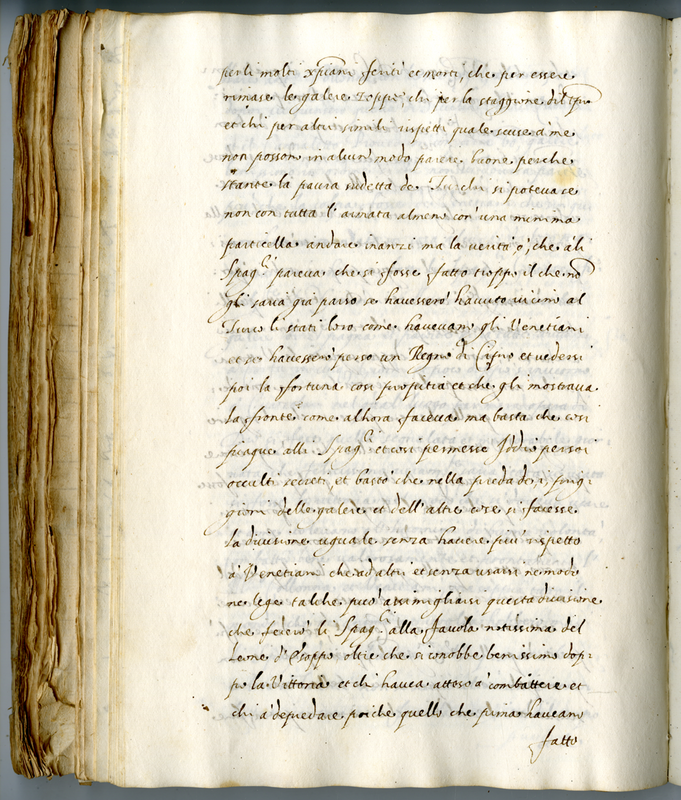 per li molti xpiani feriti et morti, che per essere
rimase le galere Zoppe, chi per la staggione del tpo
et chi per altri simili rispetti quale scuse à me
non posson in alcun modo parere buone perche
stante la paura sudetta de Turchi si poteva se
non con tutta l'armata almeno con una minima
particella andare inanzi ma la verità è, che à li
Spag.li pareva che si fosse fatto troppo il che nõ
gli saria già parso se havessero havuto vicino al
Turco li stati loro come havevano gli Venetiani
et se havessero perso un Regno di Cipro et vedersi
poi la fortuna cosi propitia et che gli mostrava
la fronte come alhora faceva ma basta che cosi
piaque alli Spag.li et cosi permesse Iddio per soi
occulti secreti, et bastò che nella preda de i prigi
gioni delle galere et dell'altre cose si facesse
la divisione uguale senza havere più rispetto
à Venetiani che ad altri et senza usarsi ne modo
ne lege talche può assimigliarsi questa divisione
che fecero li Spag.li alla favola notissima del
Leone d'Esoppo oltre che si conobbe benissimo dop:
po la Vittoria et chi havea atteso à combattere et
chi à depredare poiche quello che prima haveano
fatto